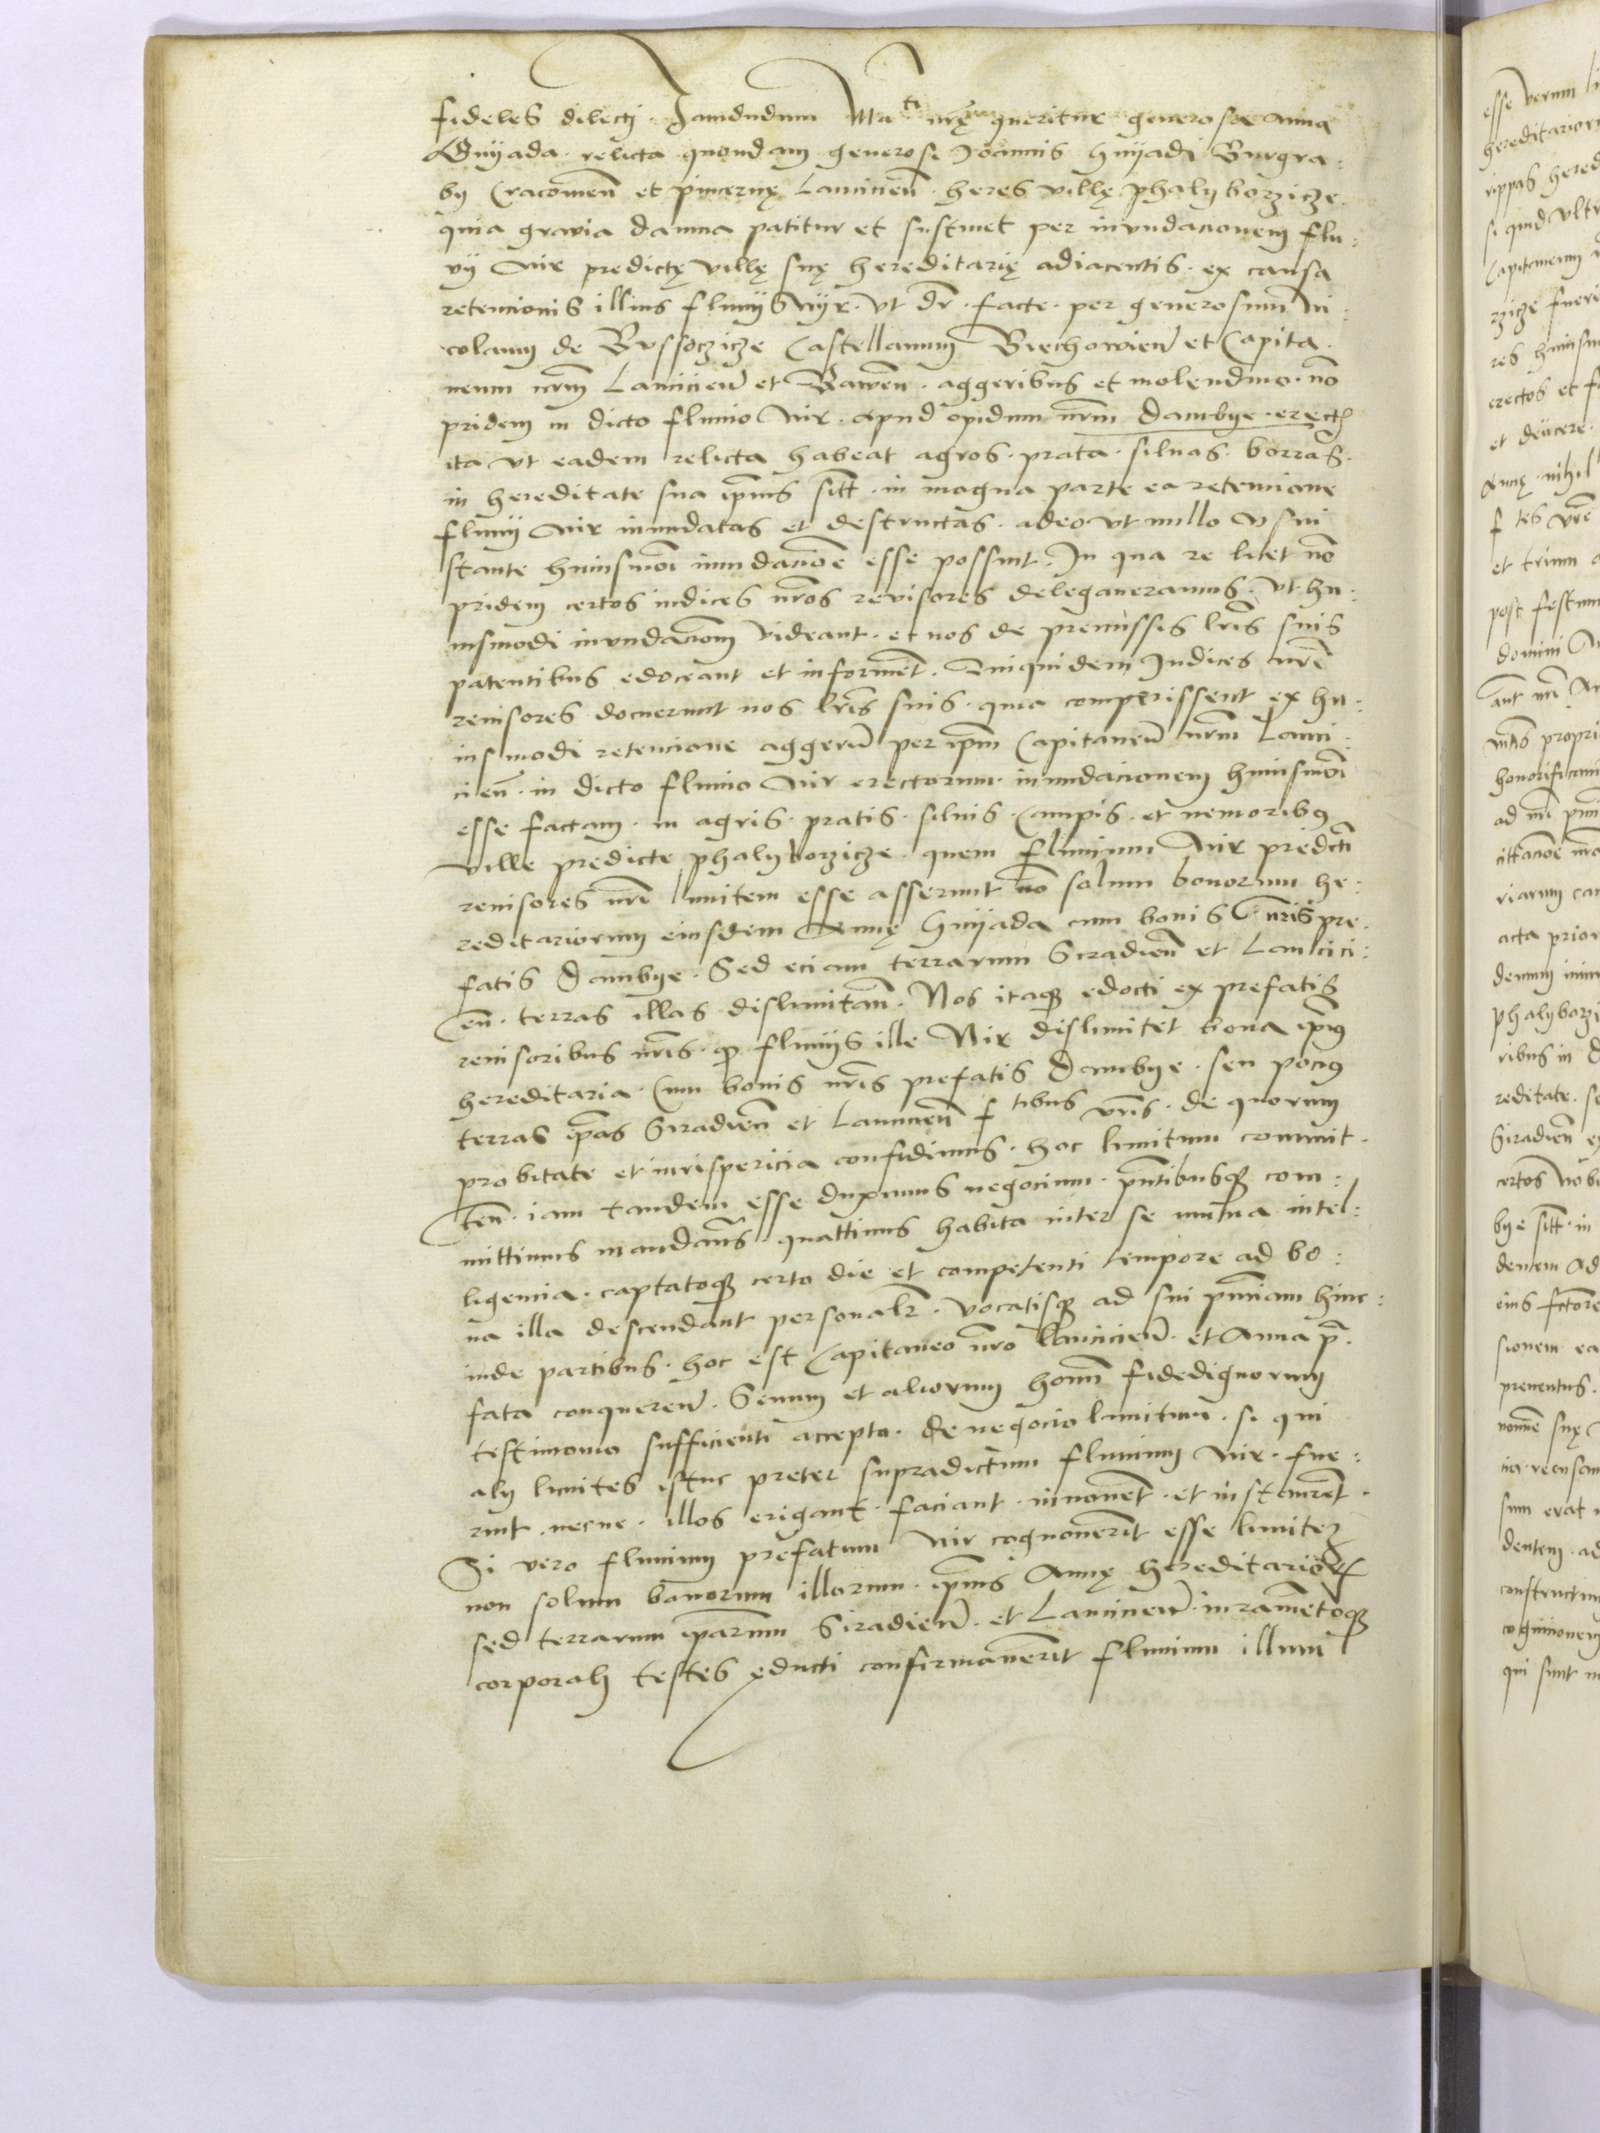 fideles dilecti. Jamdudum Ma^ti nrę queritur generosa Anna
Gnyada. relicta quondam generosi Joannis Hnyadi Burgra:
by Cracovien et pincernę Lancicien. heres villę phalyborzicze.
quia gravia damna patitur et sustinet per inundacionem flu:
vij Nir predictę villę suę hereditarię adiacentis. ex causa
retencionis illius fluvijs Nyr. ut dr. facte. per generosum Ni:
colaum de Russoczicze Castellanum Biechovien et Capita.
neum nrm Lancicien et Raven. aggeribus et molendino. no
pridem in dicto fluvio Nir. apud opidum nrm Dambye. erectis
ita ut eadem relicta habeat agros. prata. silvas. borras.
in hereditate sua ipius sitt. in magna parte ea retencione
fluvij Nir inundatas et destructas. adeo ut nullo usui
stante huiusmoi inundacioe esse possint. In qua re licet no
pridem certos iudices nros revisores delegaveramus. ut hu:
iusmodi inundacioem videant. et nos de premissis lris suis
patentibus edoceant et informent. Quiquidem Judices nri
revisores docuerunt nos lris suis. quia comperissent ex hu:
iusmodi retencione aggeru per ipm Capitaneu nrm Lanci:
cien. in dicto fluvio Nir erectorum. inundacionem huiusmoi
esse factam. in agris. pratis. silvis. Campis. et nemoribus
ville predicte phalyborzicze. quem fluvium Nir predicti
revisores nri limitem esse asserunt no solum bonorum he:
reditariorum eiusdem Annę Hnijada cum bonis nris pre.
fatis Dambye. Sed eciam terrarum Siradien et Lancici:
en. terras illas dislimitan. Nos itaque edocti ex prefatis
revisoribus nris. quod fluvijs ille Nir dislimitet bona ipius
hereditaria. Cum bonis nris prefatis Dambye. seu pocius
terras ipas Siradien et Lancicien f^tibus vris. de quorum
probitate et iurispericia confidimus. hoc limitum commit.
ten. iam tandem esse duximus negocium. pntibusque com:
mittimus mandantes. quattinus habita inter se mutua intel:
ligencia. captatoque certo die et competenti tempore ad bo:
na illa descendant personalr. vocatisque ad sui pnciam hinc:
inde partibus. hoc est Capitaneo nro Lancicien. et Anna p.
fata conqueren. Senum et aliorum homi fidedignorum
testimonio sufficienti accepto. de negocio limitum. si qui
alij limites istuc preter supradictum fluvium Nir. fue:
rint necne. illos erigant. faciant. innovent. et instaurent.
Si vero fluvium prefatum Nir cognoverit esse limitem
non solum bonorum illorum. ipius Annę hereditariorum
sed terrarum iparum Siradien. et Lancicien. iuramentoque
corporali testes educti confirmaverit fluvium illum